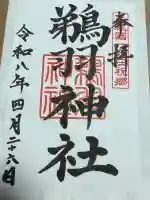 奉拝
鵜羽神社
令和八年四月二十六日